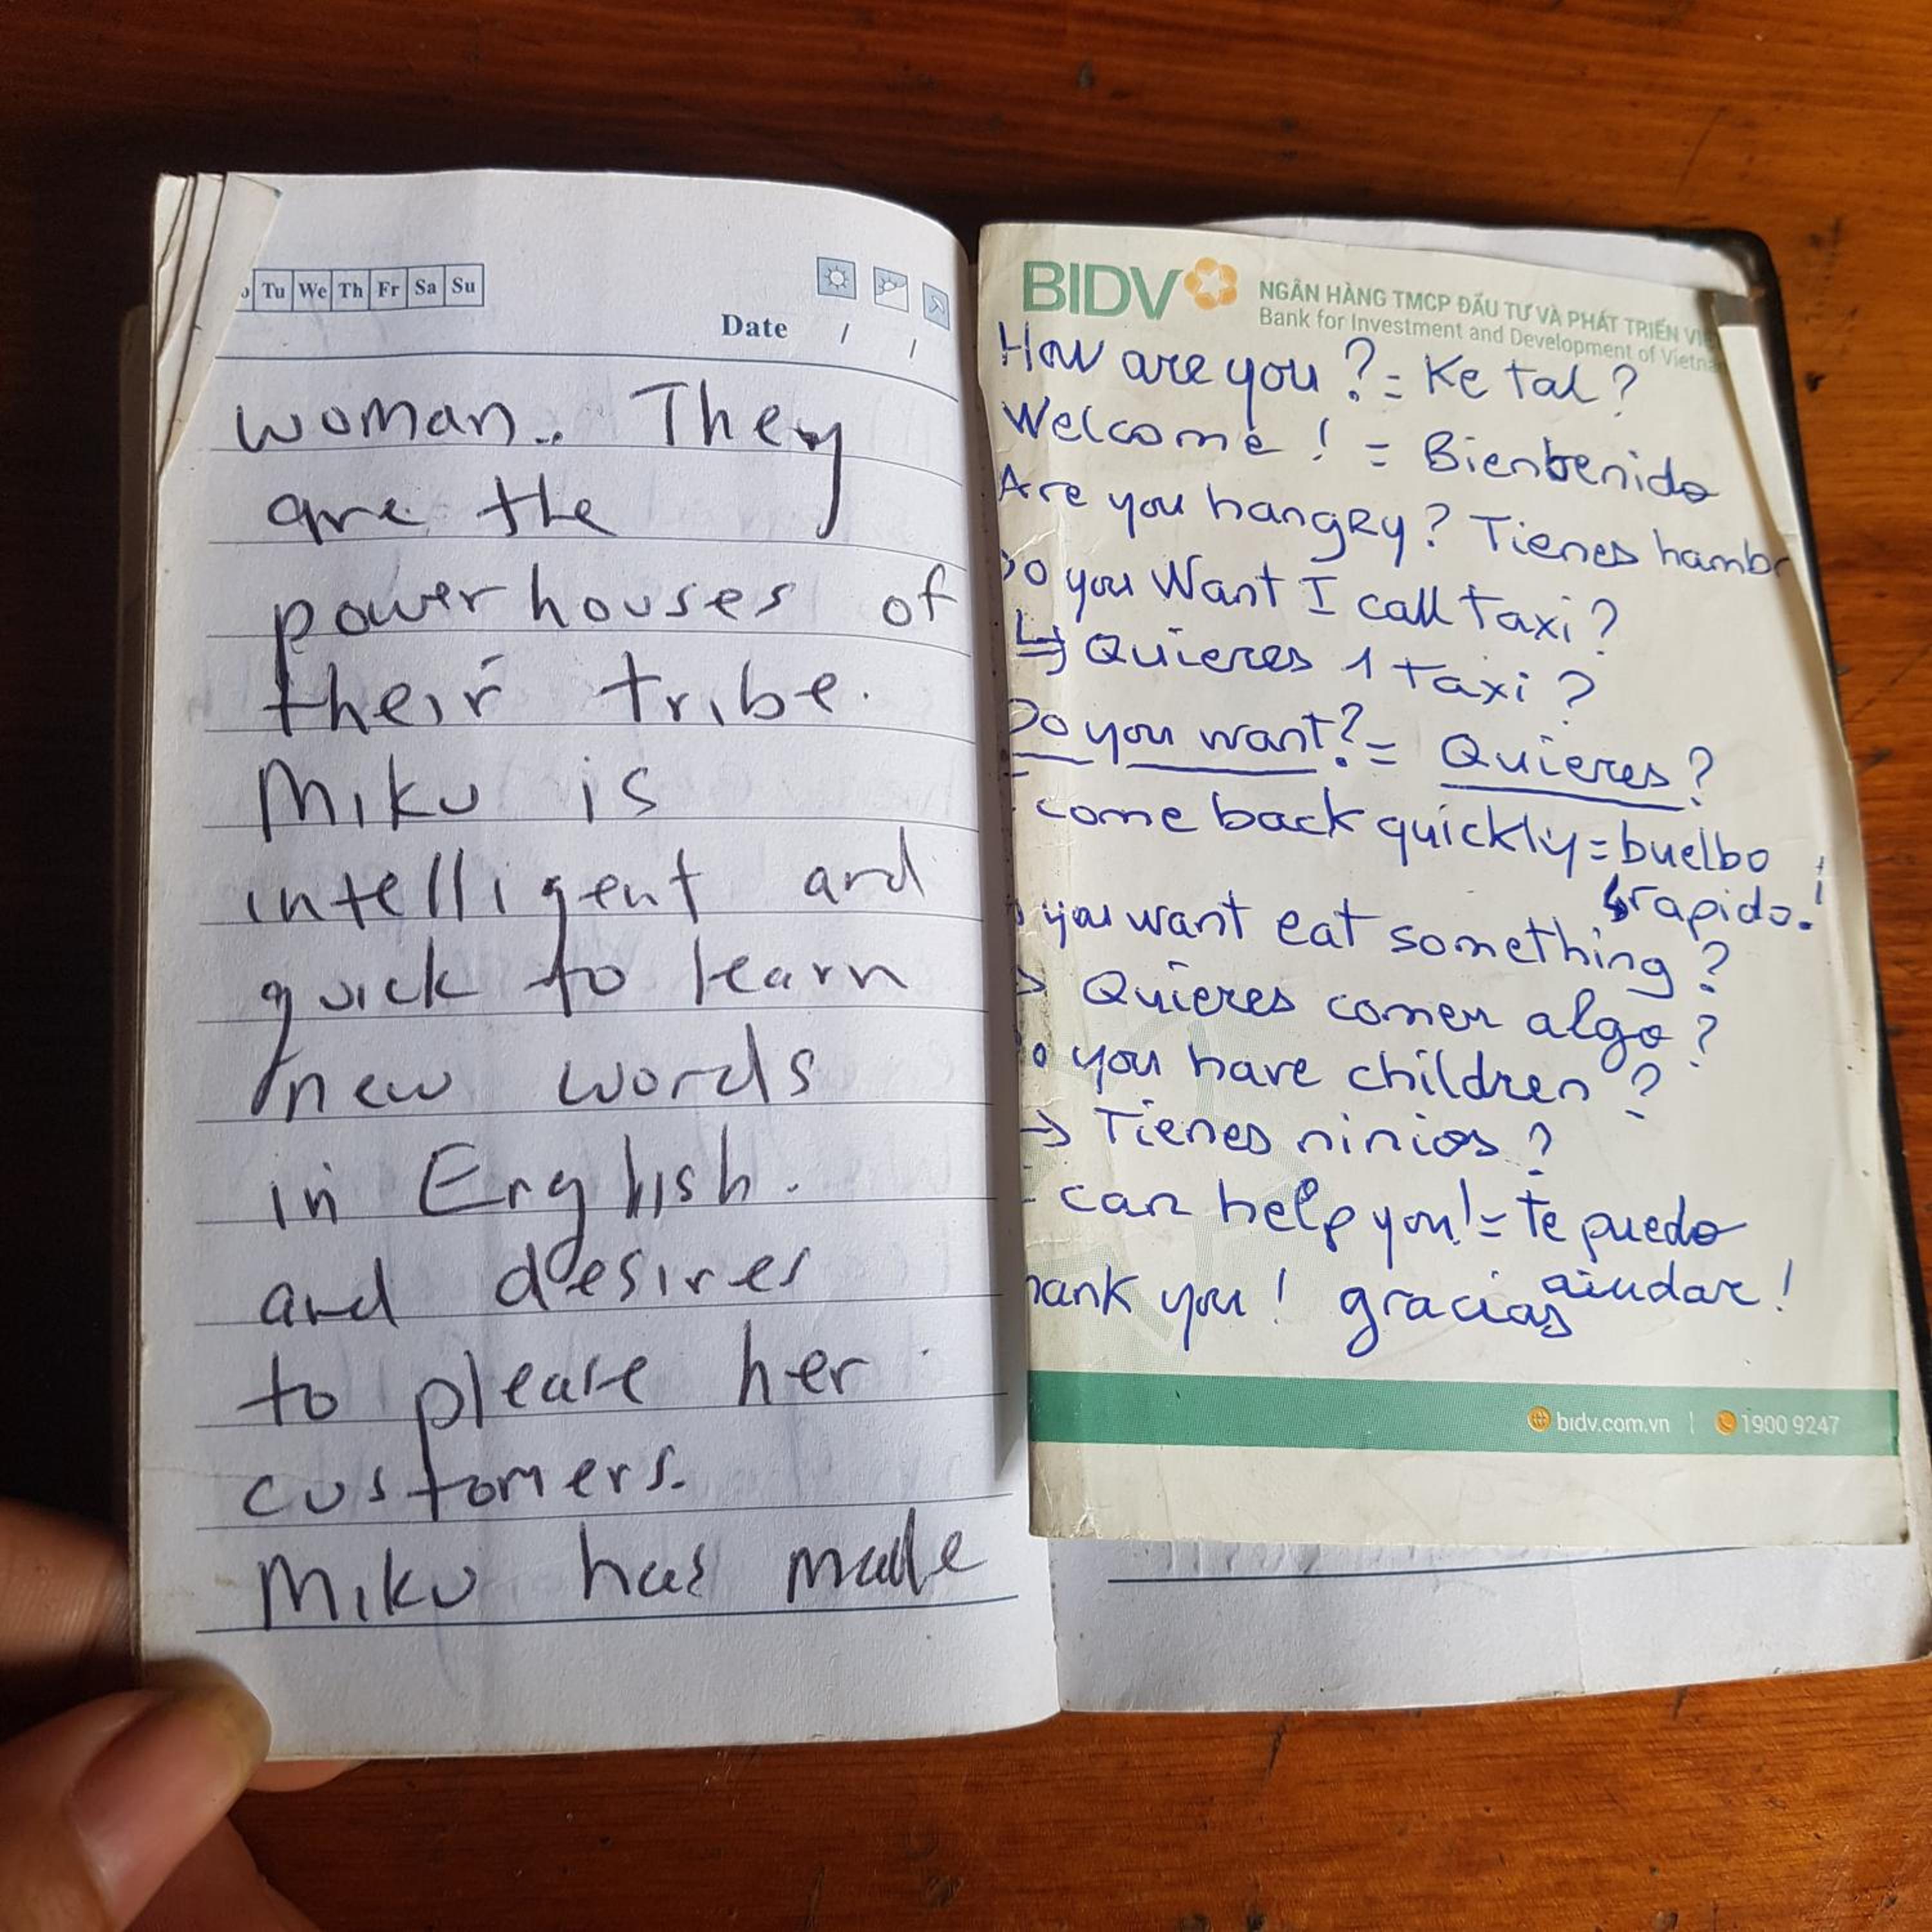 Tu We Th Fr Sa Su
Date / /
woman.. They
are the
powerhouses of
their tribe.
Miku is
intelligent and
quick to learn
new words
in English.
and desires
to please her
customers.
Miku has made
BIDV
NGÂN HÀNG TMCP ĐẦU TƯ VÀ PHÁT TRIỂN
Bank for Investment and Development of
How are you? = Ke tal?
Welcome! = Bienbenido
Are you hangry? Tienes hambr
o you Want I call taxi?
↳ Quieres 1 taxi?
Do you want? = Quieres?
- come back quickly = buelbo
↳ rapido!
you want eat something?
> Quieres comer algo?
o you have children?
→ Tienes ninios?
- can help you! = te puedo
aiudar!
hank you! gracias
bidv.com.vn | 1900 9247